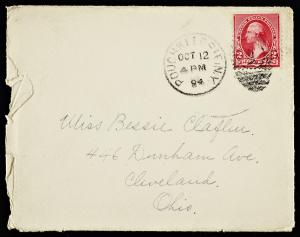 POUGHKEEPSIE N.Y.
OCT 12
4 PM
94
Miss Bessie Claflin.
446 Dunham Ave.
Cleveland.
Ohio.